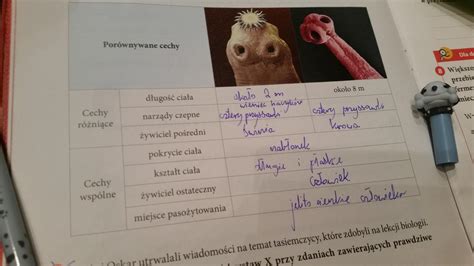 Porównywane cechy
Cechy różniące
długość ciała
około 2 m
około 8 m
narządy czepne
wieniec haczyków
cztery przyssawki
cztery przyssawki
żywiciel pośredni
świnia
krowa
Cechy wspólne
pokrycie ciała
nabłonek
kształt ciała
długie i płaskie
żywiciel ostateczny
człowiek
miejsce pasożytowania
jelito cienkie człowieka
i Oskar utrwalali wiadomości na temat tasiemczycy, które zdobyli na lekcji biologii.
X przy zdaniach zawierających prawdziwe
Dla
Większo
przebie